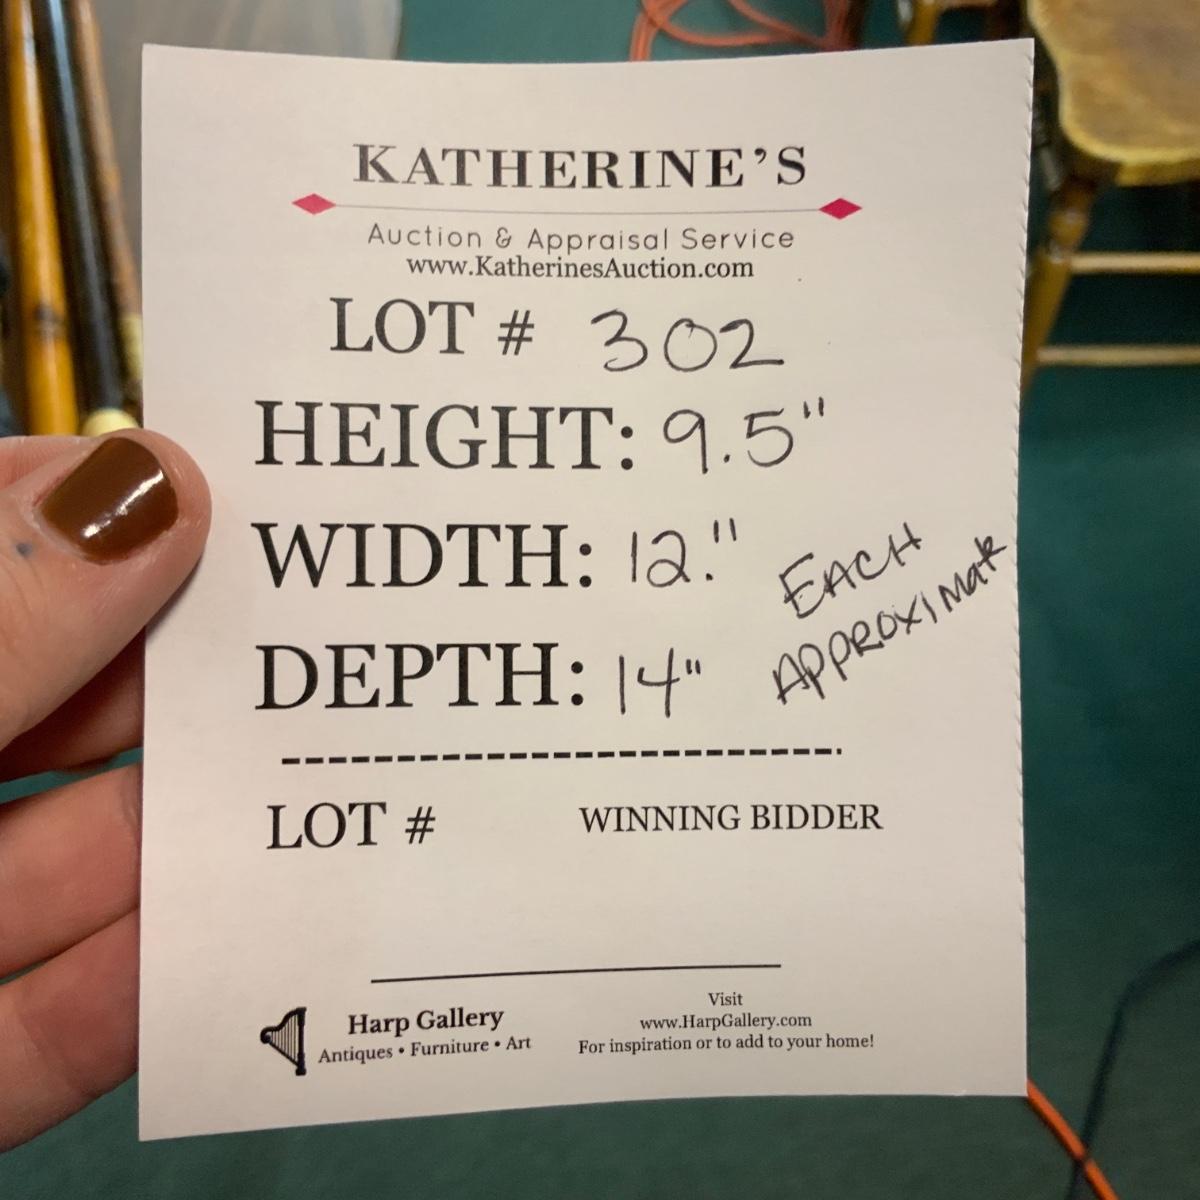 KATHERINE'S
Auction & Appraisal Service
www.KatherinesAuction.com
LOT # 302
HEIGHT: 9.5"
WIDTH: 12."
EACH
APPROXIMATE
DEPTH: 14"
LOT # WINNING BIDDER
Harp Gallery
Antiques • Furniture • Art
Visit
www.HarpGallery.com
For inspiration or to add to your home!